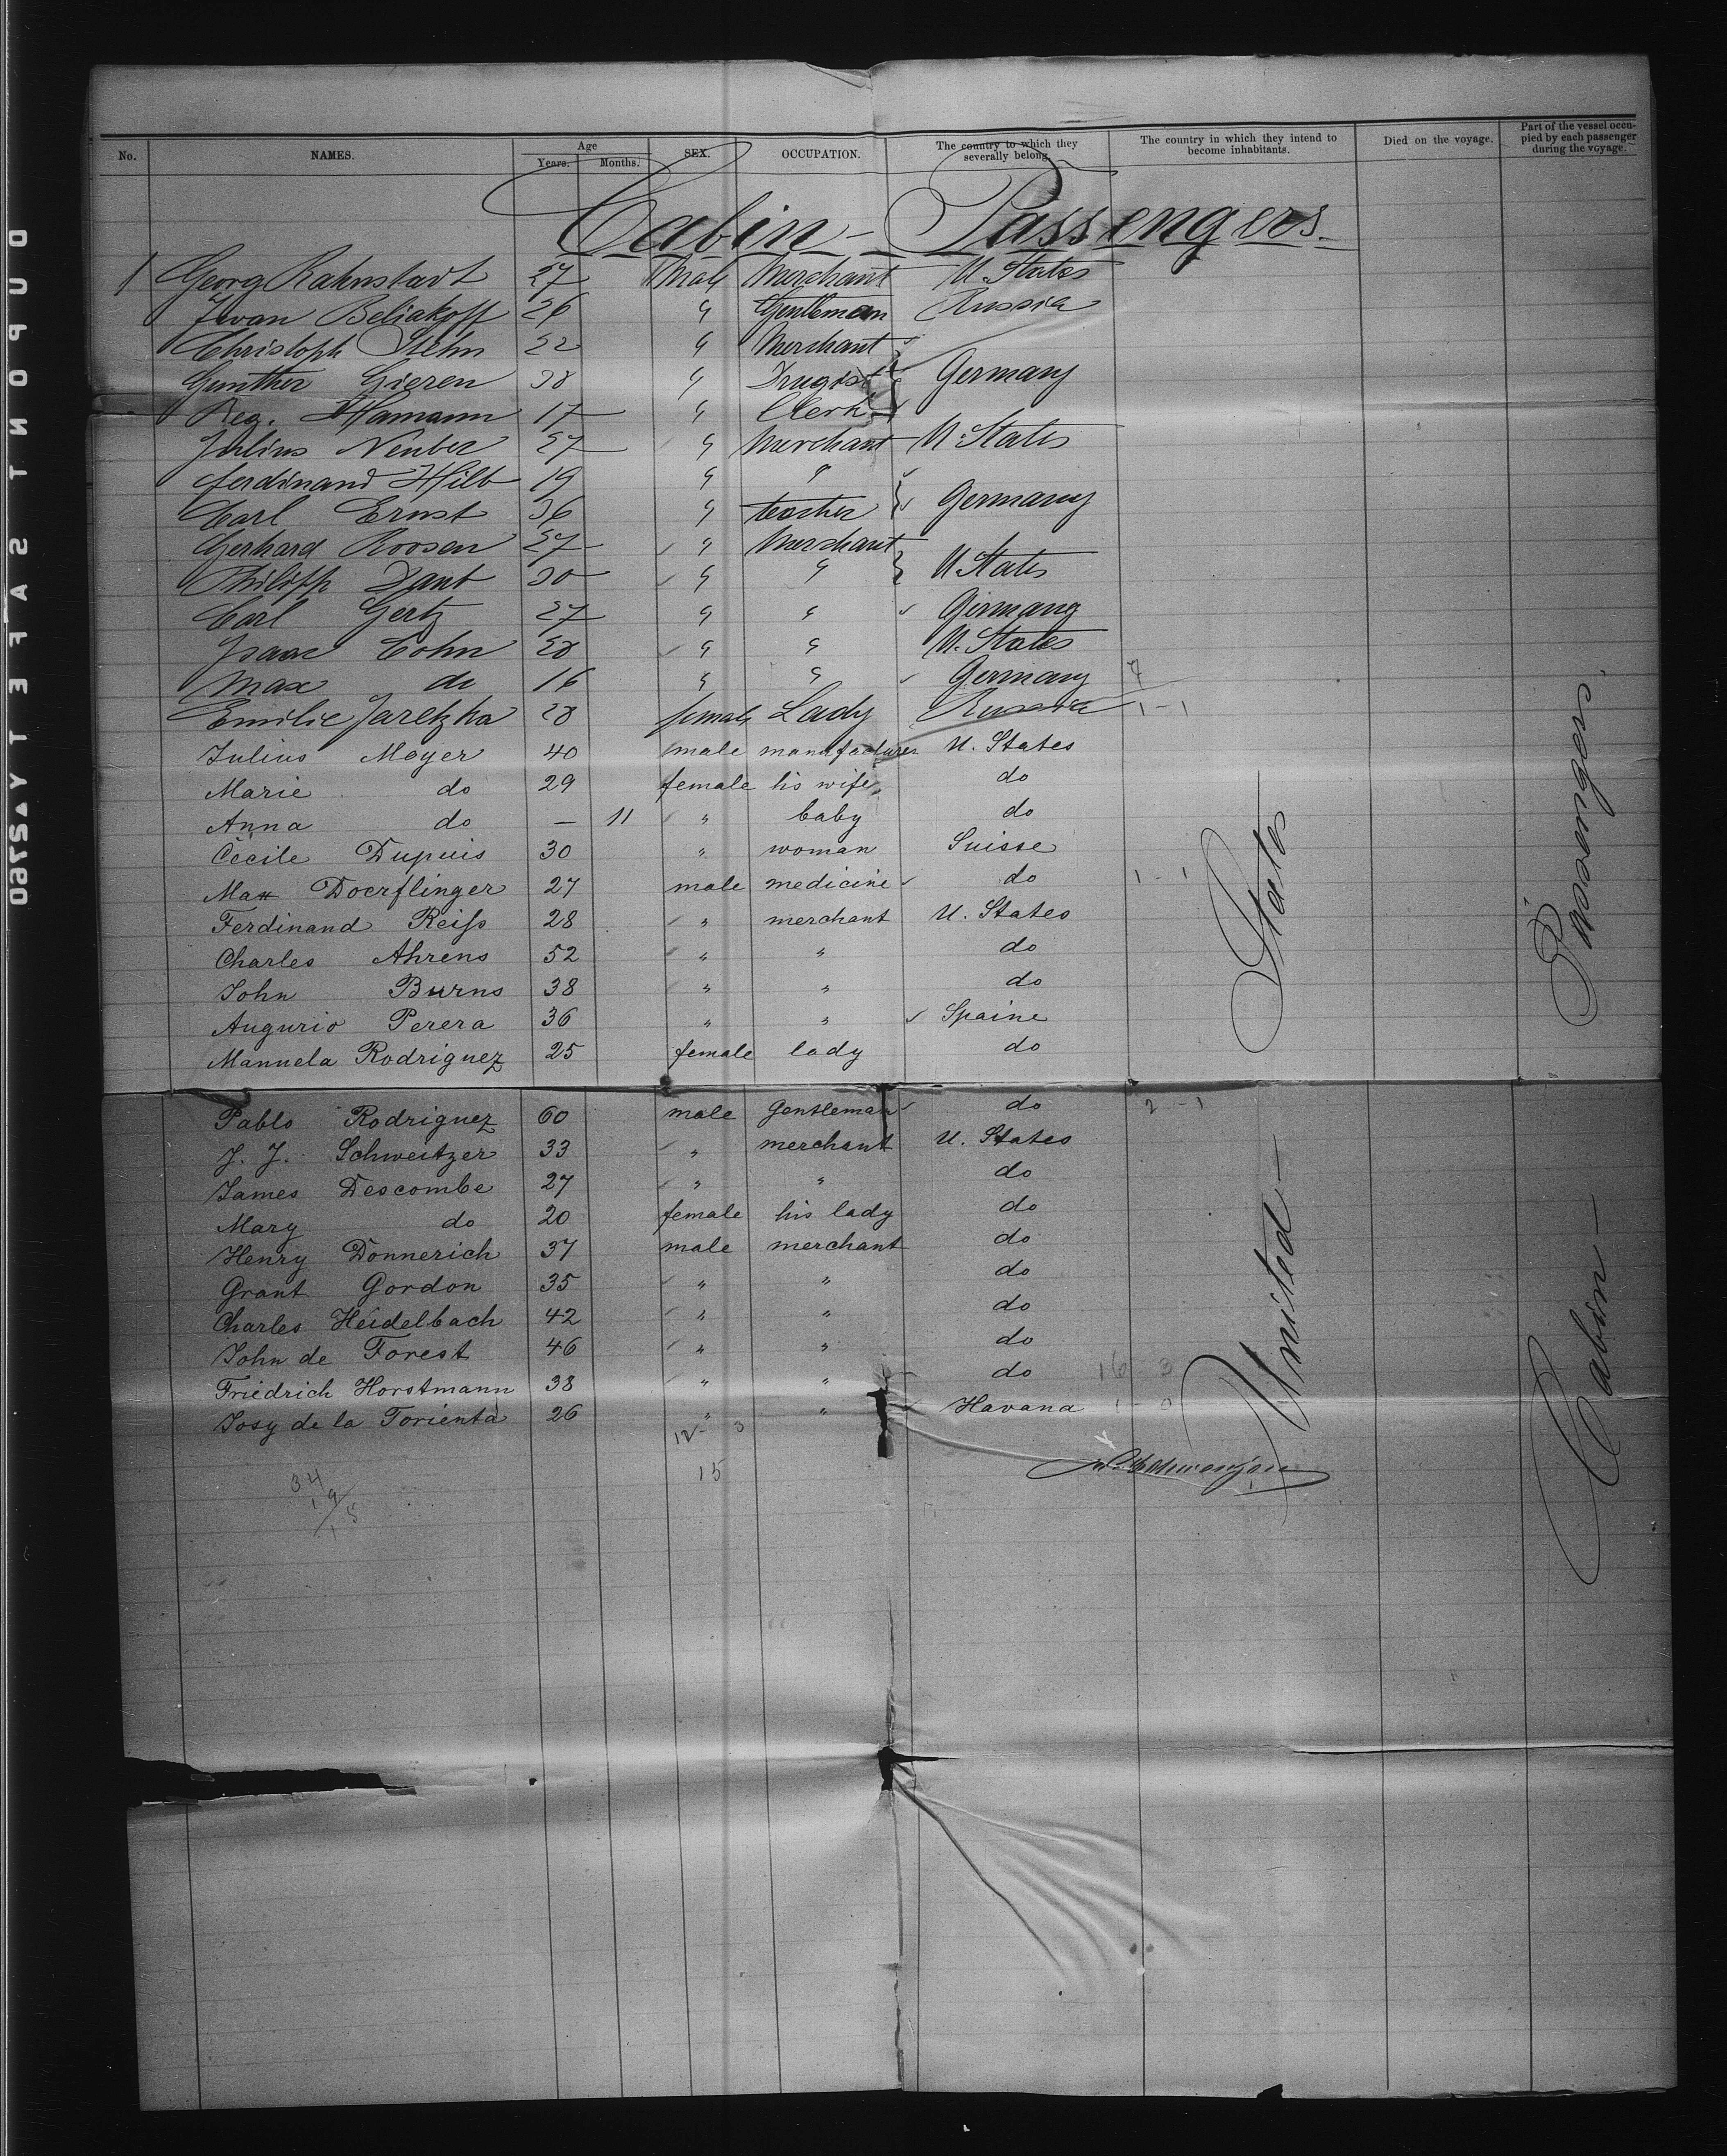 No. NAMES. Age Years. Months. SEX. OCCUPATION. The country to which they severally belong. The country in which they intend to become inhabitants. Died on the voyage. Part of the vessel occupied by each passenger during the voyage.
Cabin - Passengers.
1 Georg Rahnstadt 27 Male Merchant U. States
Iwan Beliakoff 26 " Gentleman Russia
Christoph Stehn 22 " Merchant
Gunther Gieren 38 " Drugist Germany
Reg. Hamann 17 " Clerk
Julius Neuber 27 " Merchant U. States
Ferdinand Hilb 19 " "
Carl Ernst 36 " teacher Germany
Gerhard Roosen 27 " Merchant
Philipp 30 " " U States
Carl Gertz 27 " " Germany
Isaac Cohn 28 " " U. States
Max do 16 " " Germany 7
Emilie Jaretzka 28 female Lady Russia 1-1
Julius Meyer 40 male manufacturer U. States
Marie do 29 female his wife do
Anna do — 11 " baby do
Cécile Dupuis 30 " woman Suisse
Max Doerflinger 27 male medicine do 1-1
Ferdinand Reiss 28 " merchant U. States
Charles Ahrens 52 " " do
John Burns 38 " " do
Augurio Perera 36 " " Spaine
Manuela Rodriguez 25 female lady do
Pablo Rodriguez 60 male Gentleman do 2-1
J. J. Schweitzer 33 " merchant U. States
James Descombe 27 " " do
Mary do 20 female his lady do
Henry Donnerich 37 male merchant do
Grant Gordon 35 " " do
Charles Heidelbach 42 " " do
John de Forest 46 " " do
Friedrich Horstmann 38 " " do 16 3
Josy de la Torienta 26 " " Havana 1-0
12- 3
15
34
19
15
United — States
Cabin — Passengers.
DUPONT SAFETY